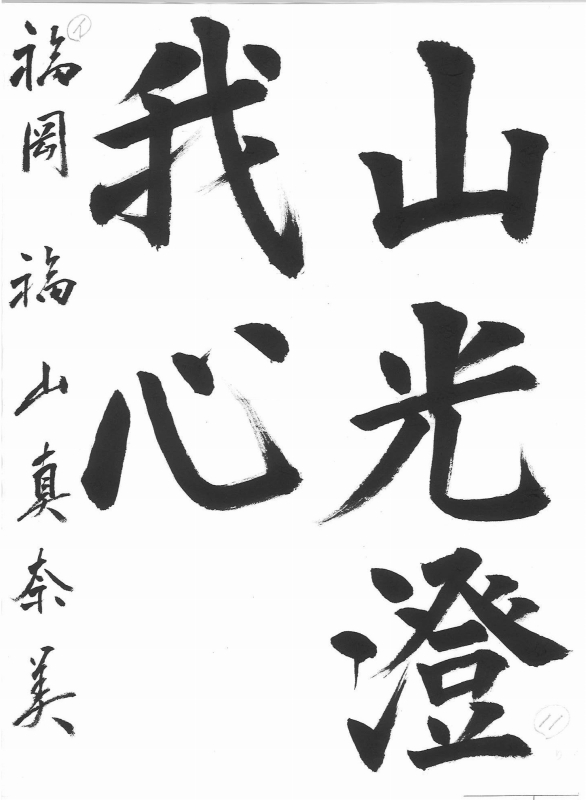 山光澄
我心
福岡 福山真奈美
イ
11